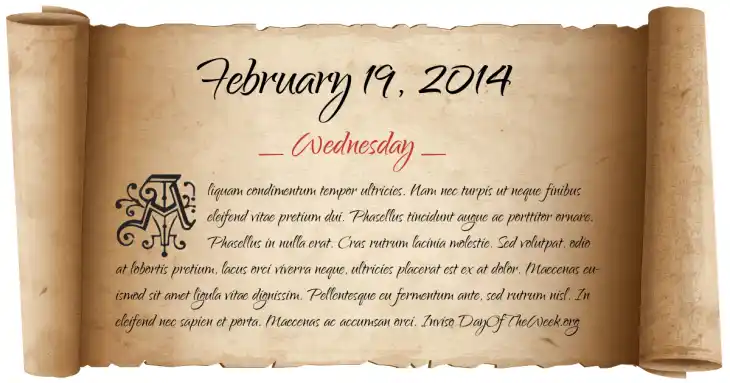 February 19, 2014
_ Wednesday _
Aliquam condimentum tempor ultricies. Nam nec turpis ut neque finibus
eleifend vitae pretium dui. Phasellus tincidunt augue ac porttitor ornare.
Phasellus in nulla erat. Cras rutrum lacinia molestie. Sed volutpat, odio
at lobortis pretium, lacus orci viverra neque, ultricies placerat est ex at dolor. Maecenas eu-
ismod sit amet ligula vitae dignissim. Pellentesque eu fermentum ante, sed rutrum nisl. In
eleifend nec sapien et porta. Maecenas ac accumsan orci. Inviso DayOfTheWeek.org